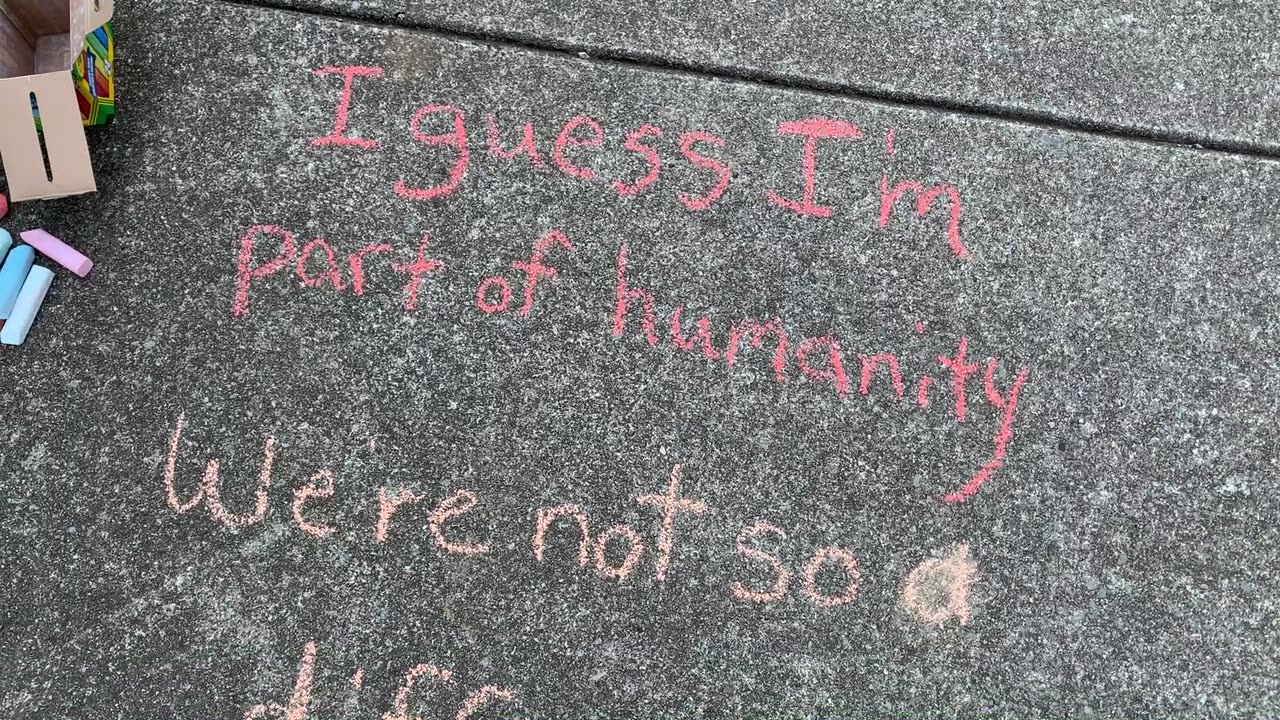 I guess I'm
part of humanity
We're not so
diff